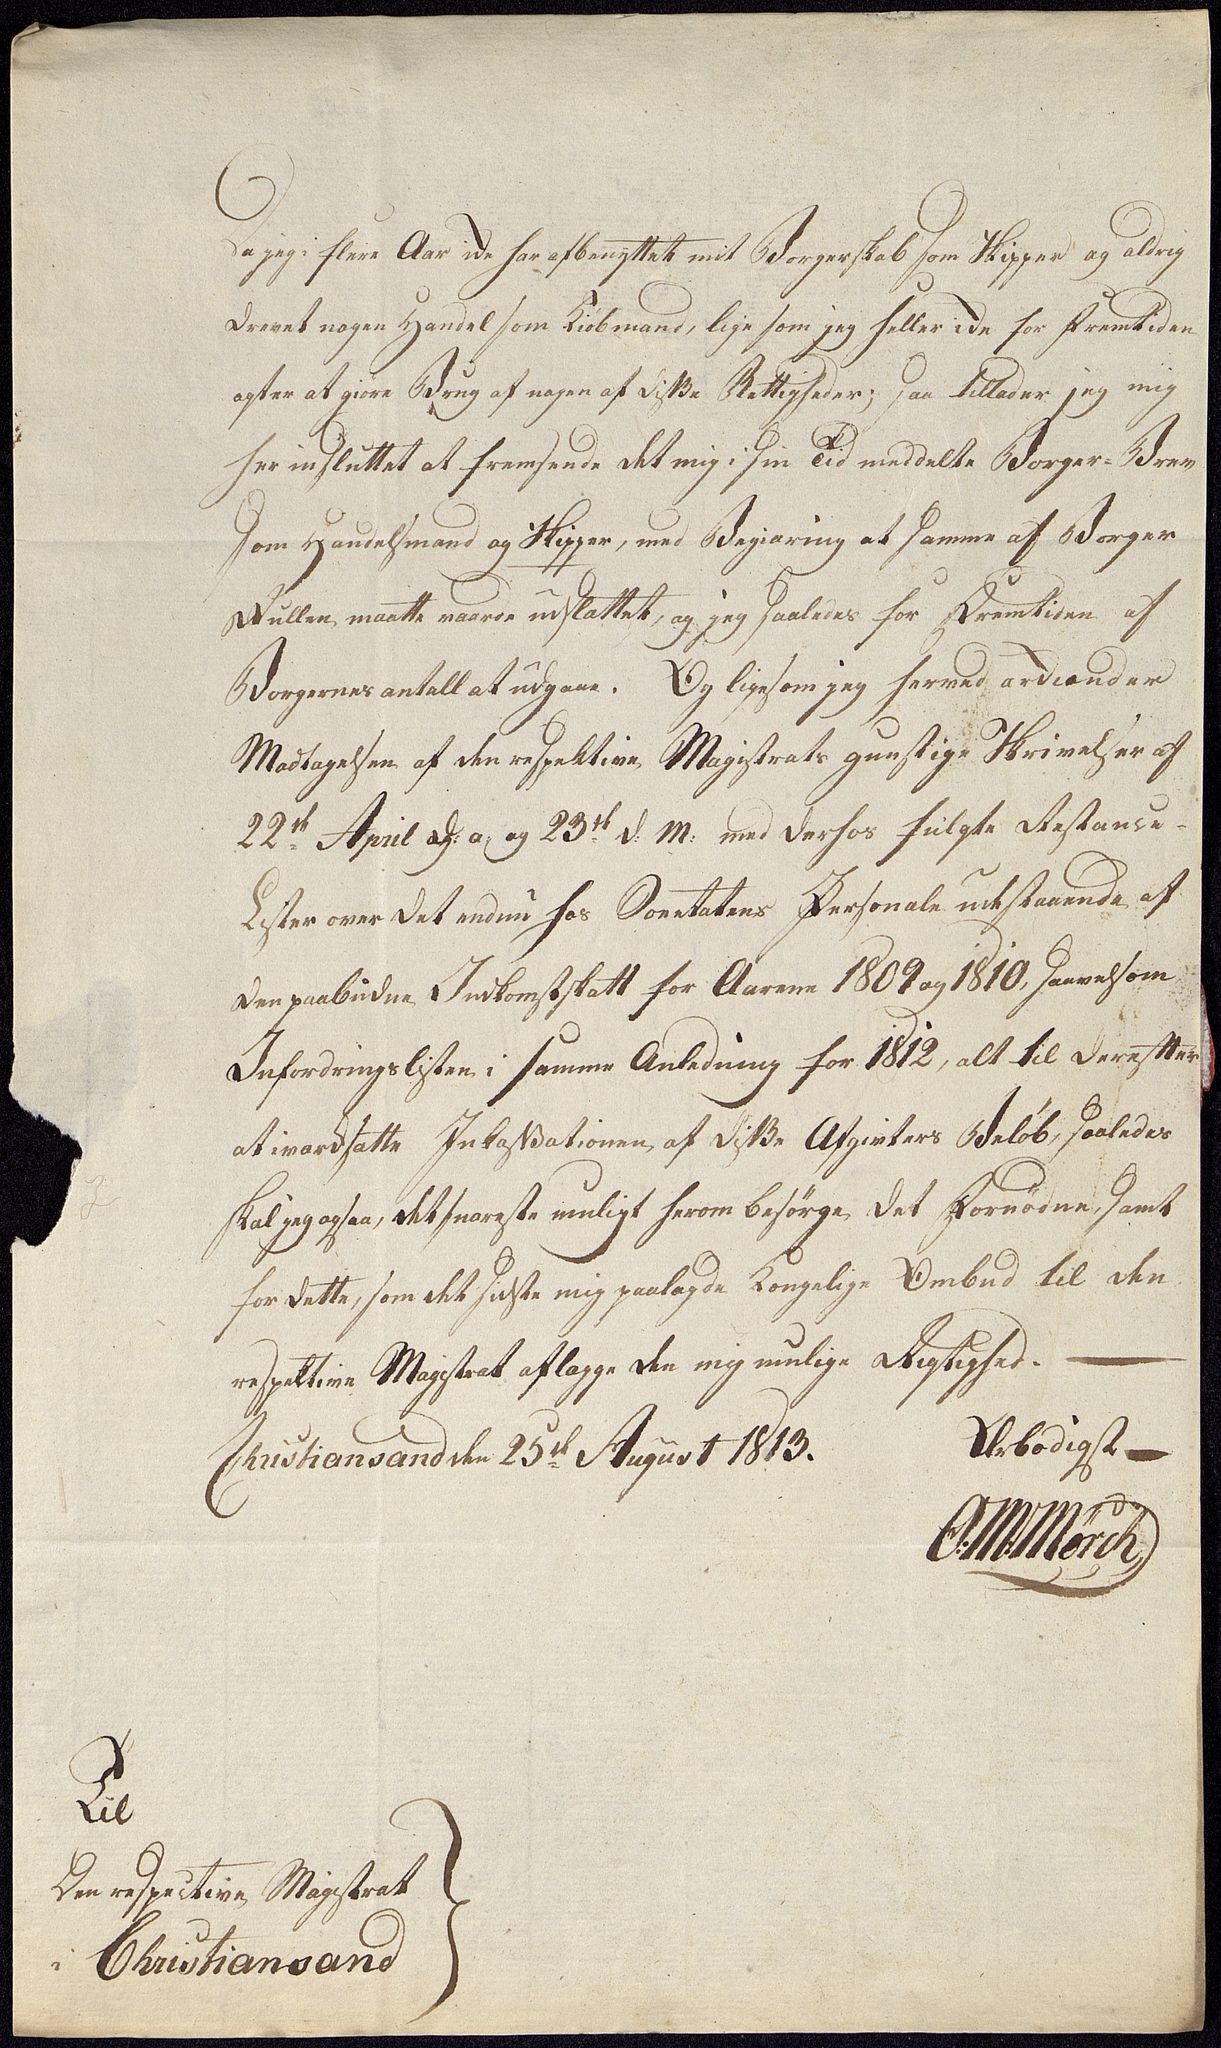 Da jeg i flere Aar icke har afbenyttet mit Borgerskab som Skipper og aldrig
drevet nogen Handel som Kiöbmand, lige som jeg heller icke for Fremtiden
agter at giöre Brug af nogen af disse Rettigheder; saa tillader jeg mig
her indsluttet at fremsende det mig i sin Tid meddelte Borger-Brev
som Handelsmand og Skipper, med Begiæring at samme af Borger
Rullen maatte vaarde udslættet, og jeg saaledes for Fremtiden af
Borgernes antall at udgaae. Og ligesom jeg herved erkiender
Modtagelsen af den respektive Magistrats gunstige Skrivelser af
22de April d: a: og 23de d: M: med derhos fulgte Restance-
Lister over det endnu hos Borgerskabets Personale udestaaende af
den paabudne Indkomstskatt for Aarene 1809 og 1810, saavelsom
Infordringslisten i samme Anledning for 1812, alt til derefter
at iværdsætte Inkassationen af disse Afgivters Belöb, saaledes
skal jeg ogsaa, det snareste muligt herom besörge det Fornödne, samt
for dette, som det sidste mig paalagde Kongelige Ombud til den
respektive Magistrat aflægge den mig mulige Rigtighed. —
Christiansand den 25de August 1813. Ærbödigst —
O. M. Mörch
Til
Den respective Magistrat
i Christiansand